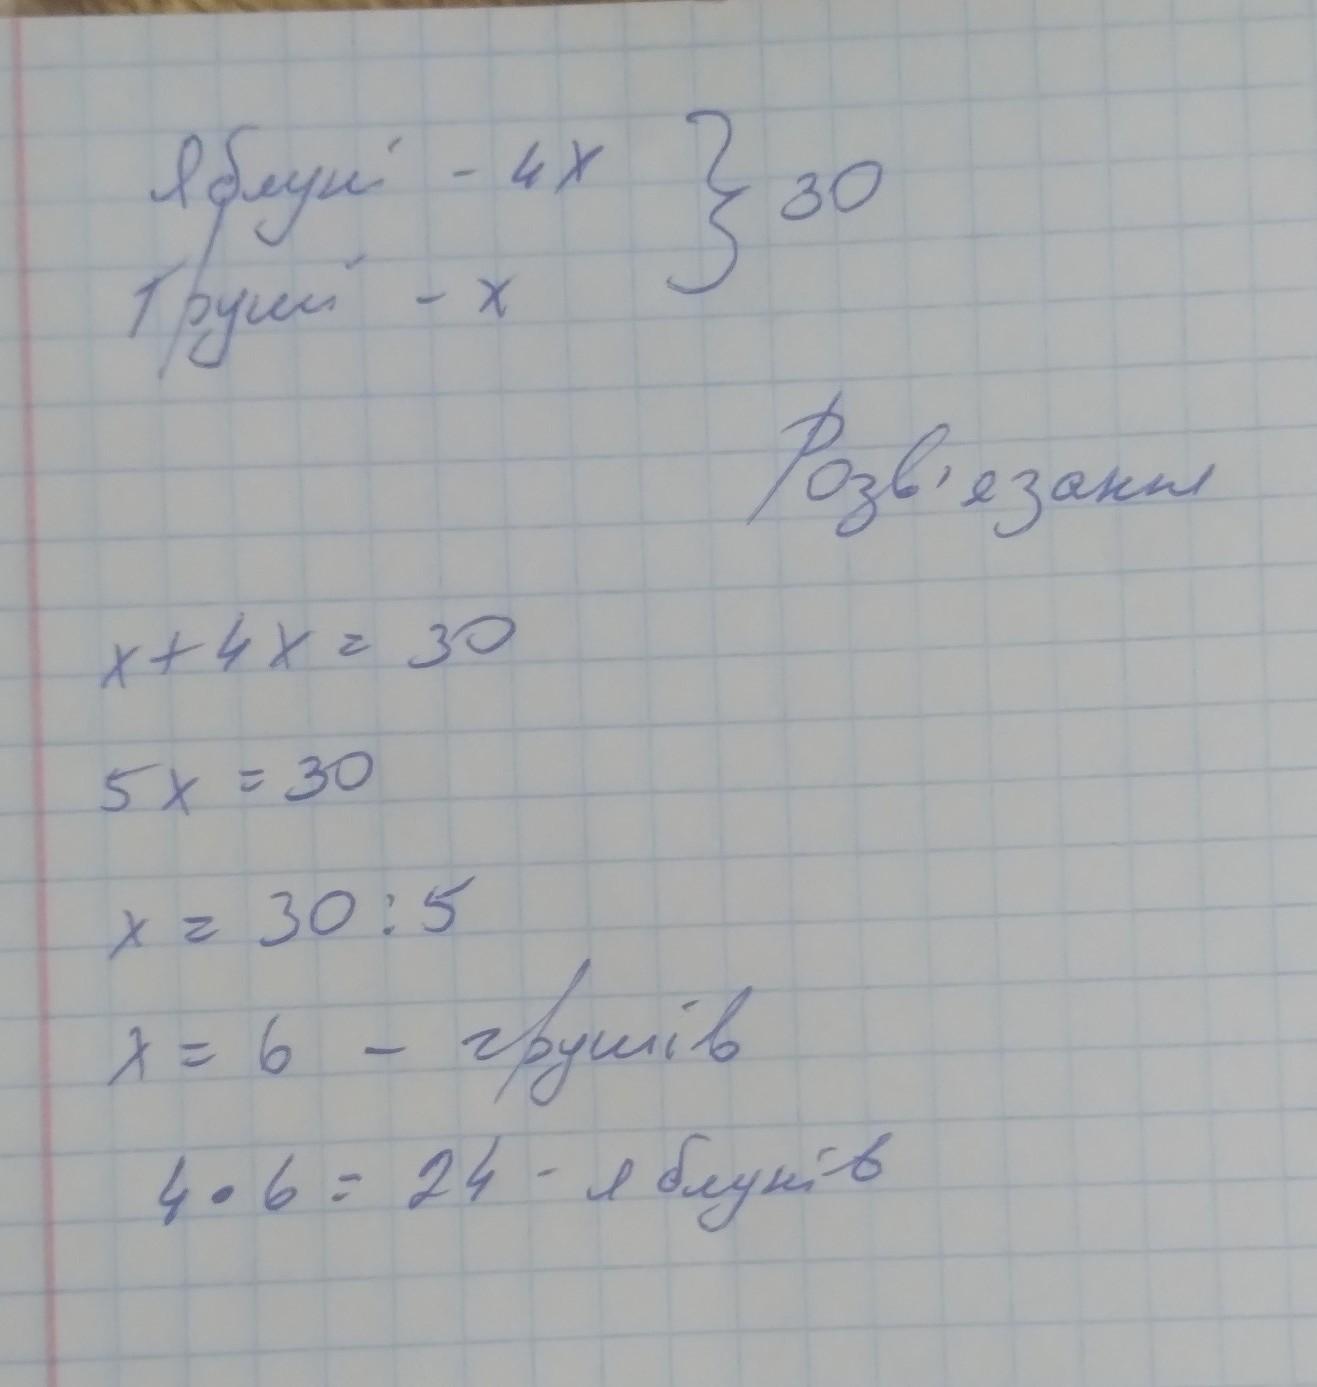 Яблуні - 4х } 30
Груші - х
Розв'язання
х+4х = 30
5х = 30
х = 30:5
х = 6 - грушів
4•6 = 24 - яблунів